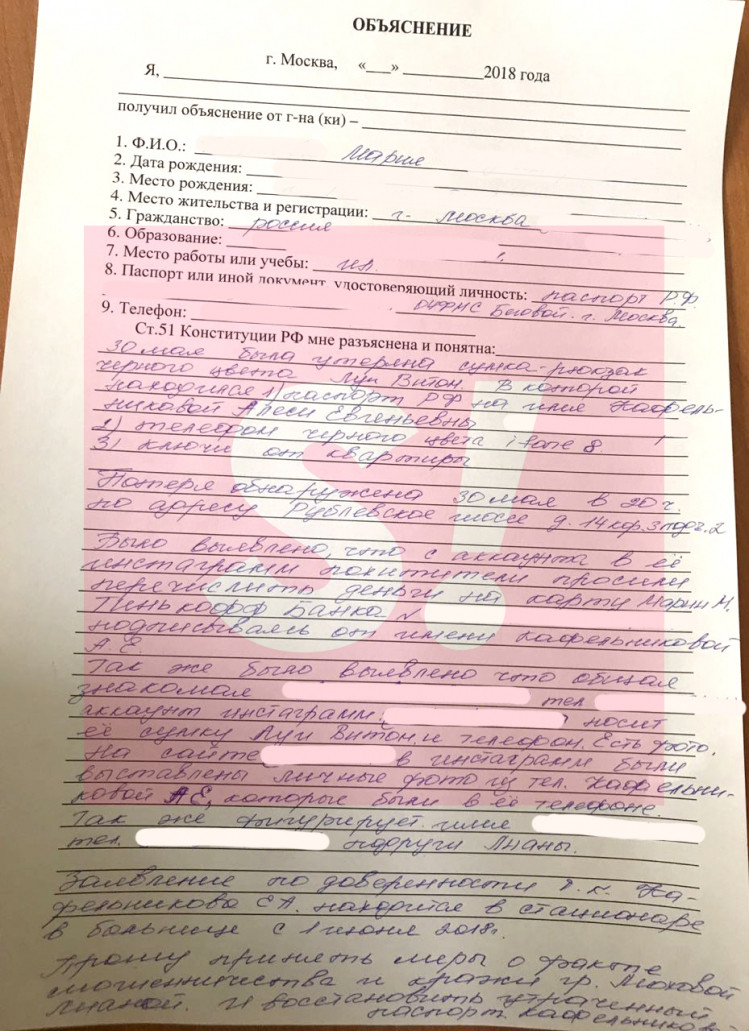 ОБЪЯСНЕНИЕ
г. Москва, «___» __________2018 года
Я,
получил объяснение от г-на (ки) –
1. Ф.И.О.: Мария
2. Дата рождения:
3. Место рождения:
4. Место жительства и регистрации: г. Москва
5. Гражданство: россия
6. Образование:
7. Место работы или учебы:
8. Паспорт или иной документ, удостоверяющий личность: паспорт Р.Ф.
Беговой. г. Москва
9. Телефон:
Ст.51 Конституции РФ мне разъяснена и понятна:
30 мая была утеряна сумка-рюкзак
черного цвета Луи Витон. В которой
находился 1) паспорт РФ на имя Кафель-
никовой Алеси Евгеньевны
2) телефон черного цвета ifone 8
3) ключи от квартиры
Потеря обнаружена 30 мая в 20 ч.
по адресу Рублевское шоссе д. 14 кор. 3 под. 2
Было выявлено, что с аккаунта в её
инстаграмм похитители просили
перечислить деньги на карту Марии М.
Тинькофф Банка №
подписываясь от имени Кафельниковой
А.Е.
Так же было выявлено что общая
знакомая тел
аккаунт инстаграмм. носит
её сумку Луи Витон и телефон. Есть фото.
На сайте в инстаграмм были
выставлены личные фото из тел. Кафельни-
ковой АЕ, которые были в её телефоне.
Так же фигурирует имя
тел. подруги Лианы.
Заявление по доверенности т.к. Ка-
фельникова ЕА. находится в стационаре
в больнице с 1 июня 2018г.
Прошу принять меры о факте
мошенничества и кражи гр. Моховой
Лианой. И восстановить утраченный
паспорт Кафельниковой
S!